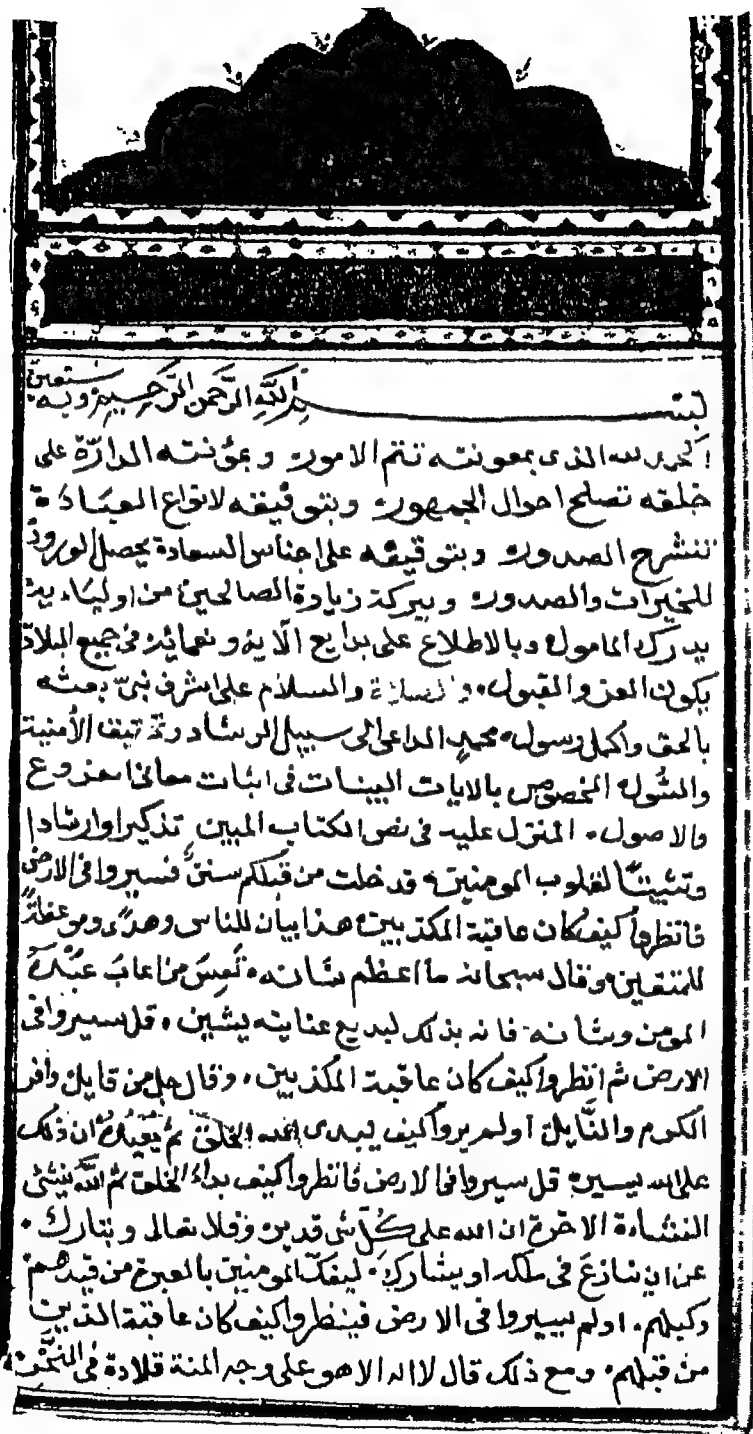 بسم الله الرحمن الرحيم وبه نستعين
الحمد لله الذى بمعونته تتم الامور وبمؤنته الدارّة على
خلقه تصلح احوال الجمهور وبتوفيقه لانواع العبادة
تنشرح الصدور وبتوقيفه على اجناس السعادة يحصل الورود
للخيرات والصدور وببركة زيارة الصالحين من اوليائه
يدرك المامول وبالاطلاع على بدايع الآيه ونعمائه فى جميع البلاد
يكون العز والقبول والصلاة والسلام على اشرف نبىّ بعثه
بالحق واكمل رسول محمدٍ الداعى الى سبيل الرشاد الأمنية
والسُّول المخصوص بالايات البينات فى اثبات معانى الفروع
والاصول المنزل عليه فى نص الكتاب المبين تذكيرا وارشادا
وتثبيتًا لقلوب المومنين قد خلت من قبلكم سننٌ فسيروا فى الارض
فانظروا كيف كان عاقبة المكذبين هذا بيان للناس وهدًى وموعظةً
للمتقين وقال سبحانه ما اعظم شانه تعس من اعاب عَبْدَهُ
المومن وشانه فانه بذلك لبديع عنايته يشين قل سيروا فى
الارض ثم انظروا كيف كان عاقبة المكذبين وقال جل من قايل وافر
الكرم والنَّايل اولم يروا كيف يبدى الله الخلق ثم يُعِيدُهُ ان ذلك
على الله يسير قل سيروا فى الارض فانظروا كيف بداءَ الخلق ثم اللهُ ينشئ
النشاءة الاخرة ان الله على كُلّ شى قدير وقال تعالى وتبارك
عن ان ينازعَ فى ملكه او يشارك ليفكّ المومنين بالعبرة من قيدهم
وكبلهم اولم يسيروا فى الارض فينظروا كيف كان عاقبة الذين
من قبلهم ومع ذلك قال لا اله الا هو على وجه المنة قلادة فى النحر